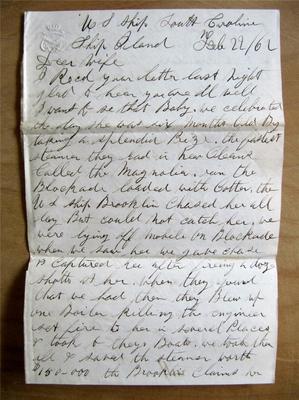 U S Ship South Caroline
Ship Island Feb 22/62
Dear Wife
I Recd your letter last night
glad to hear you are all well
I want to se that Baby. we celebrated
the day she was six months old By
taking a splendid Prize. the fastest
steamer they had in New Orleans
Called the Magnolia. run the
Blockade loaded with Cotton. the
U S Ship Brooklin Chased her all
day But could not catch her. we
were lying off Mobile On Blockade
when we saw her we gave chase
& Captured her after firing a doz
shotts at her. when they found
that we had them they Blew up
one Boiler killing the engineer
set fire to her in several Places
& took to theyr Boats. we took them
all & saved the steamer worth
$150-000 the Brooklin Claims in